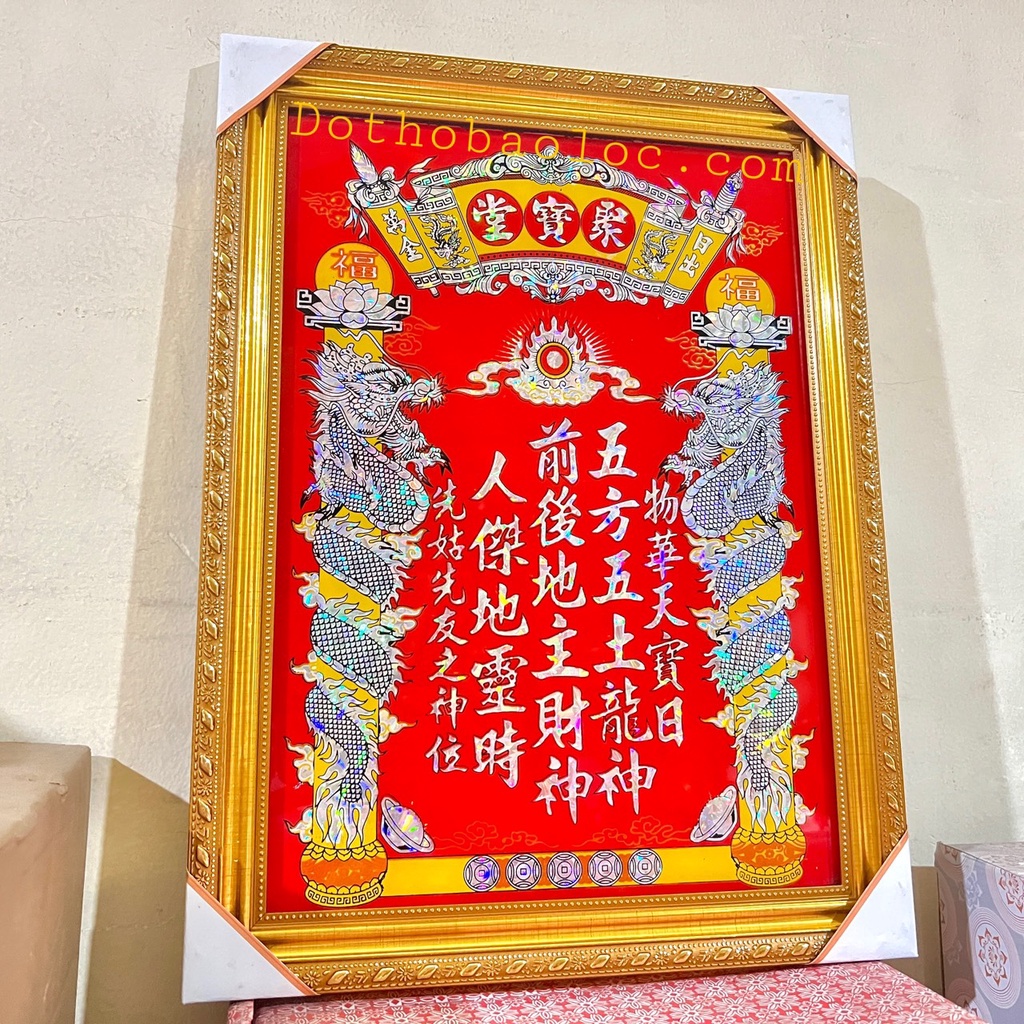 Dothobaoloc.com
聚寶堂
日出
萬金
福
福
物華天寶日
五方五土龍神
前後地主財神
人傑地靈時
先姑先友之神位